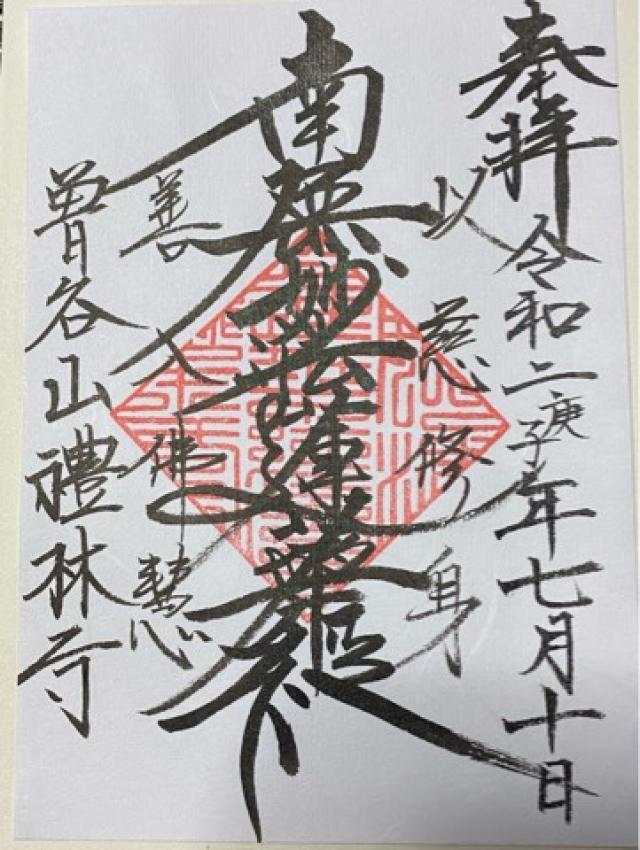 奉拝
令和二庚子年七月十日
以慈修身
南無妙法蓮華経
善入佛慧
曽谷山禮林寺